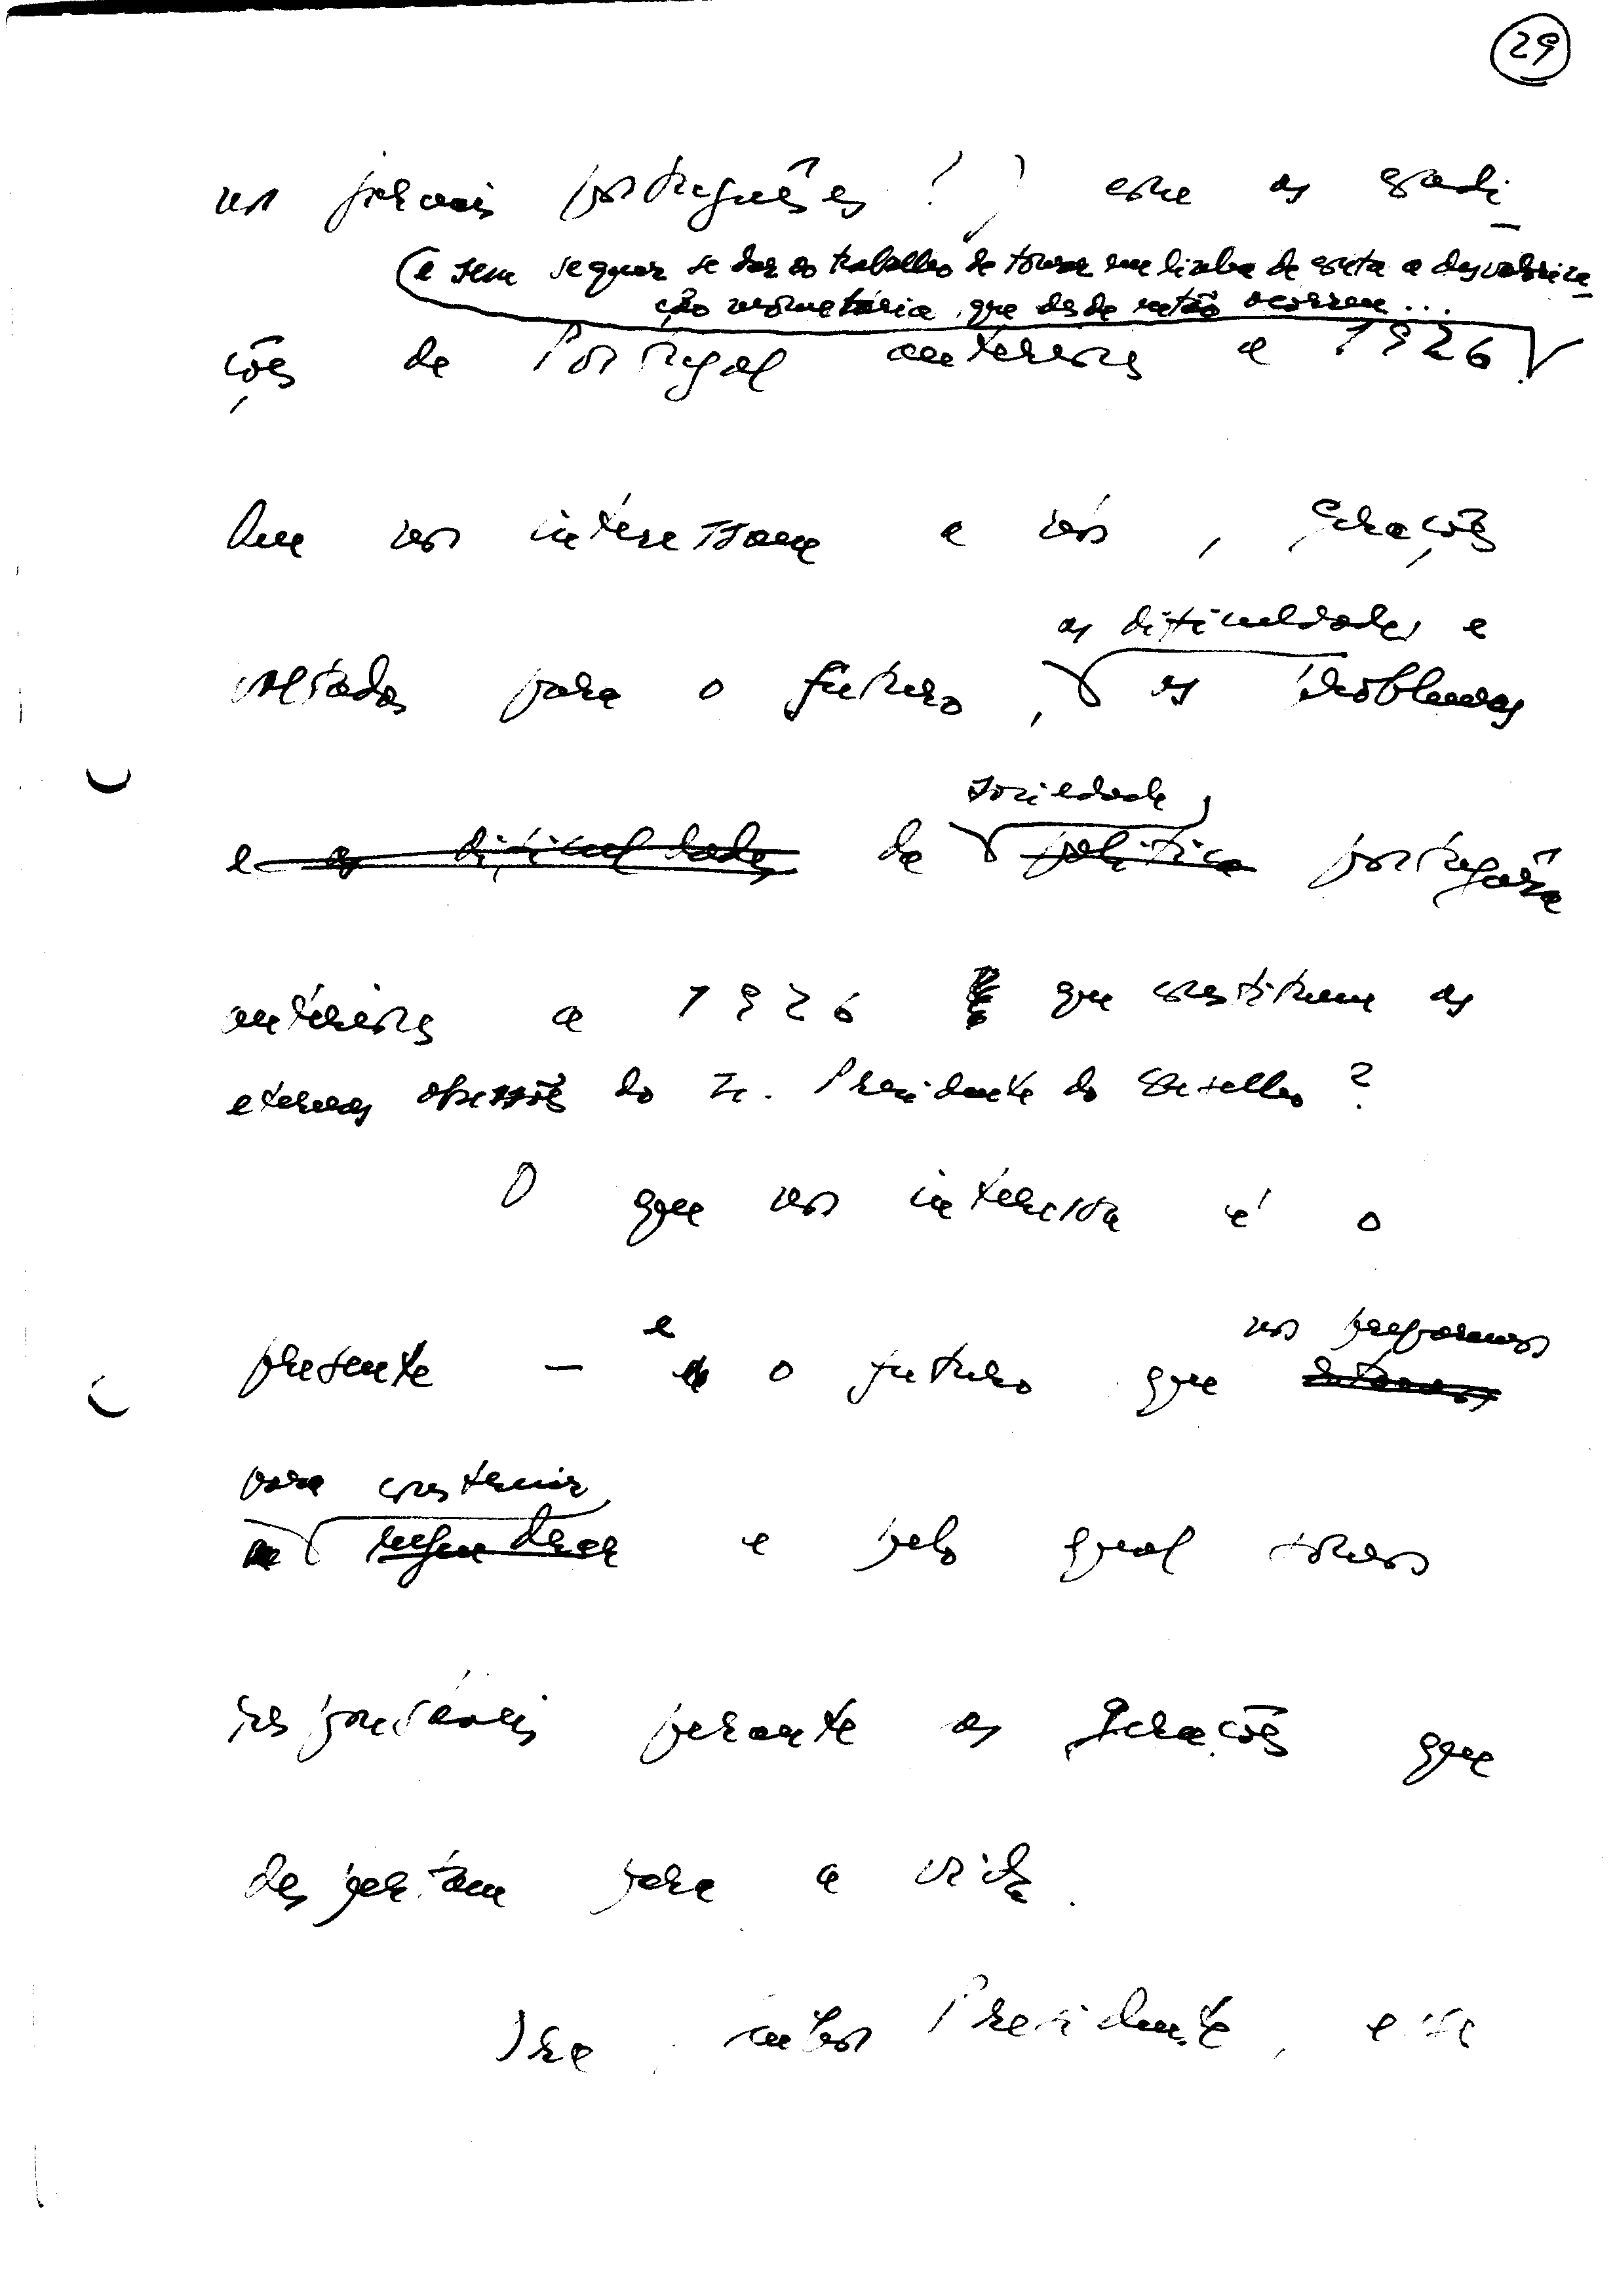 29
nos jornais portugueses!) com as condi_
(e sem sequer se dar ao trabalho de tomar em linha de conta a desvaloriza_
ção monetária que desde então ocorreu...
ções de Portugal anteriores a 1926.
Que nos interessam a nós, gerações
as dificuldades e
voltadas para o futuro, os problemas
sociedade
e as dificuldades da política portuguesa
anteriores a 1926 que constituem as
eternas obsessões do Sr. Presidente do Conselho?
O que nos interessa é o
e nos preparamos
presente — o futuro que
para construir
e pelo qual somos
responsáveis perante as gerações que
despertam para a vida.
Ora, senhor Presidente, esse